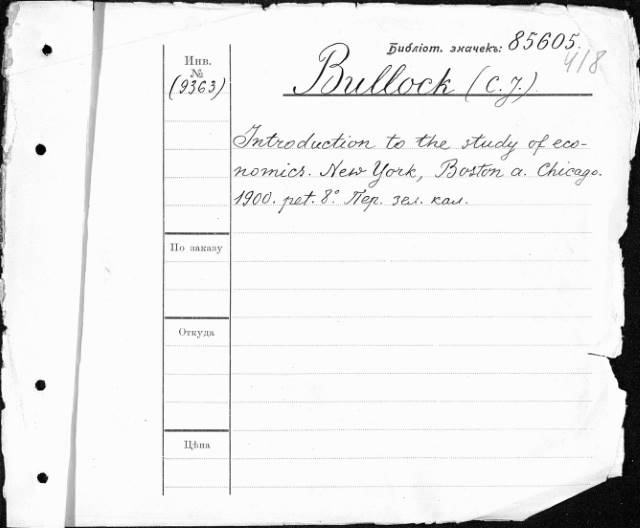 Библіот. значекъ: 85605.
418
Инв.
№
(9363)
Bullock (C. J.)
Introduction to the study of eco-
nomics. New York, Boston a. Chicago.
1900. pet. 8º. Пер. зел. кал.
По заказу
Откуда
Цѣна